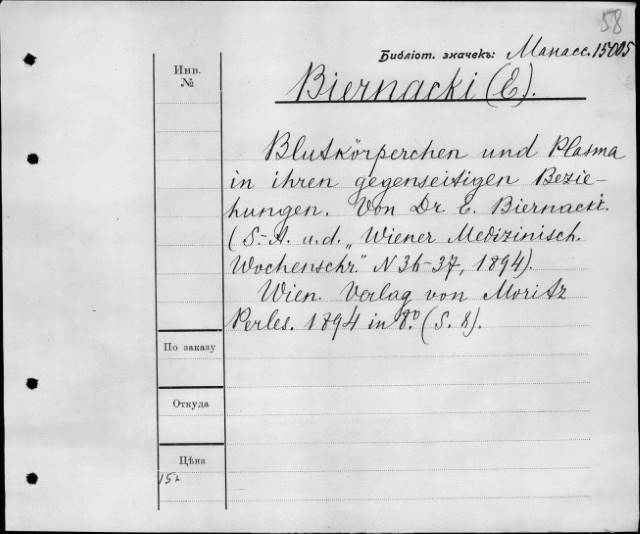 58
Библіот. значекъ: Манасс. 15005
Инв.
№
Biernacki (E).
Blutkörperchen und Plasma
in ihren gegenseitigen Bezie-
hungen. Von Dr. E. Biernacki.
(S.-A. a.d. „Wiener Medizinisch.
Wochenschr." N 36-37, 1894).
Wien. Verlag von Moritz
Perles. 1894 in 8.° (S. 8).
По заказу
Откуда
Цѣна